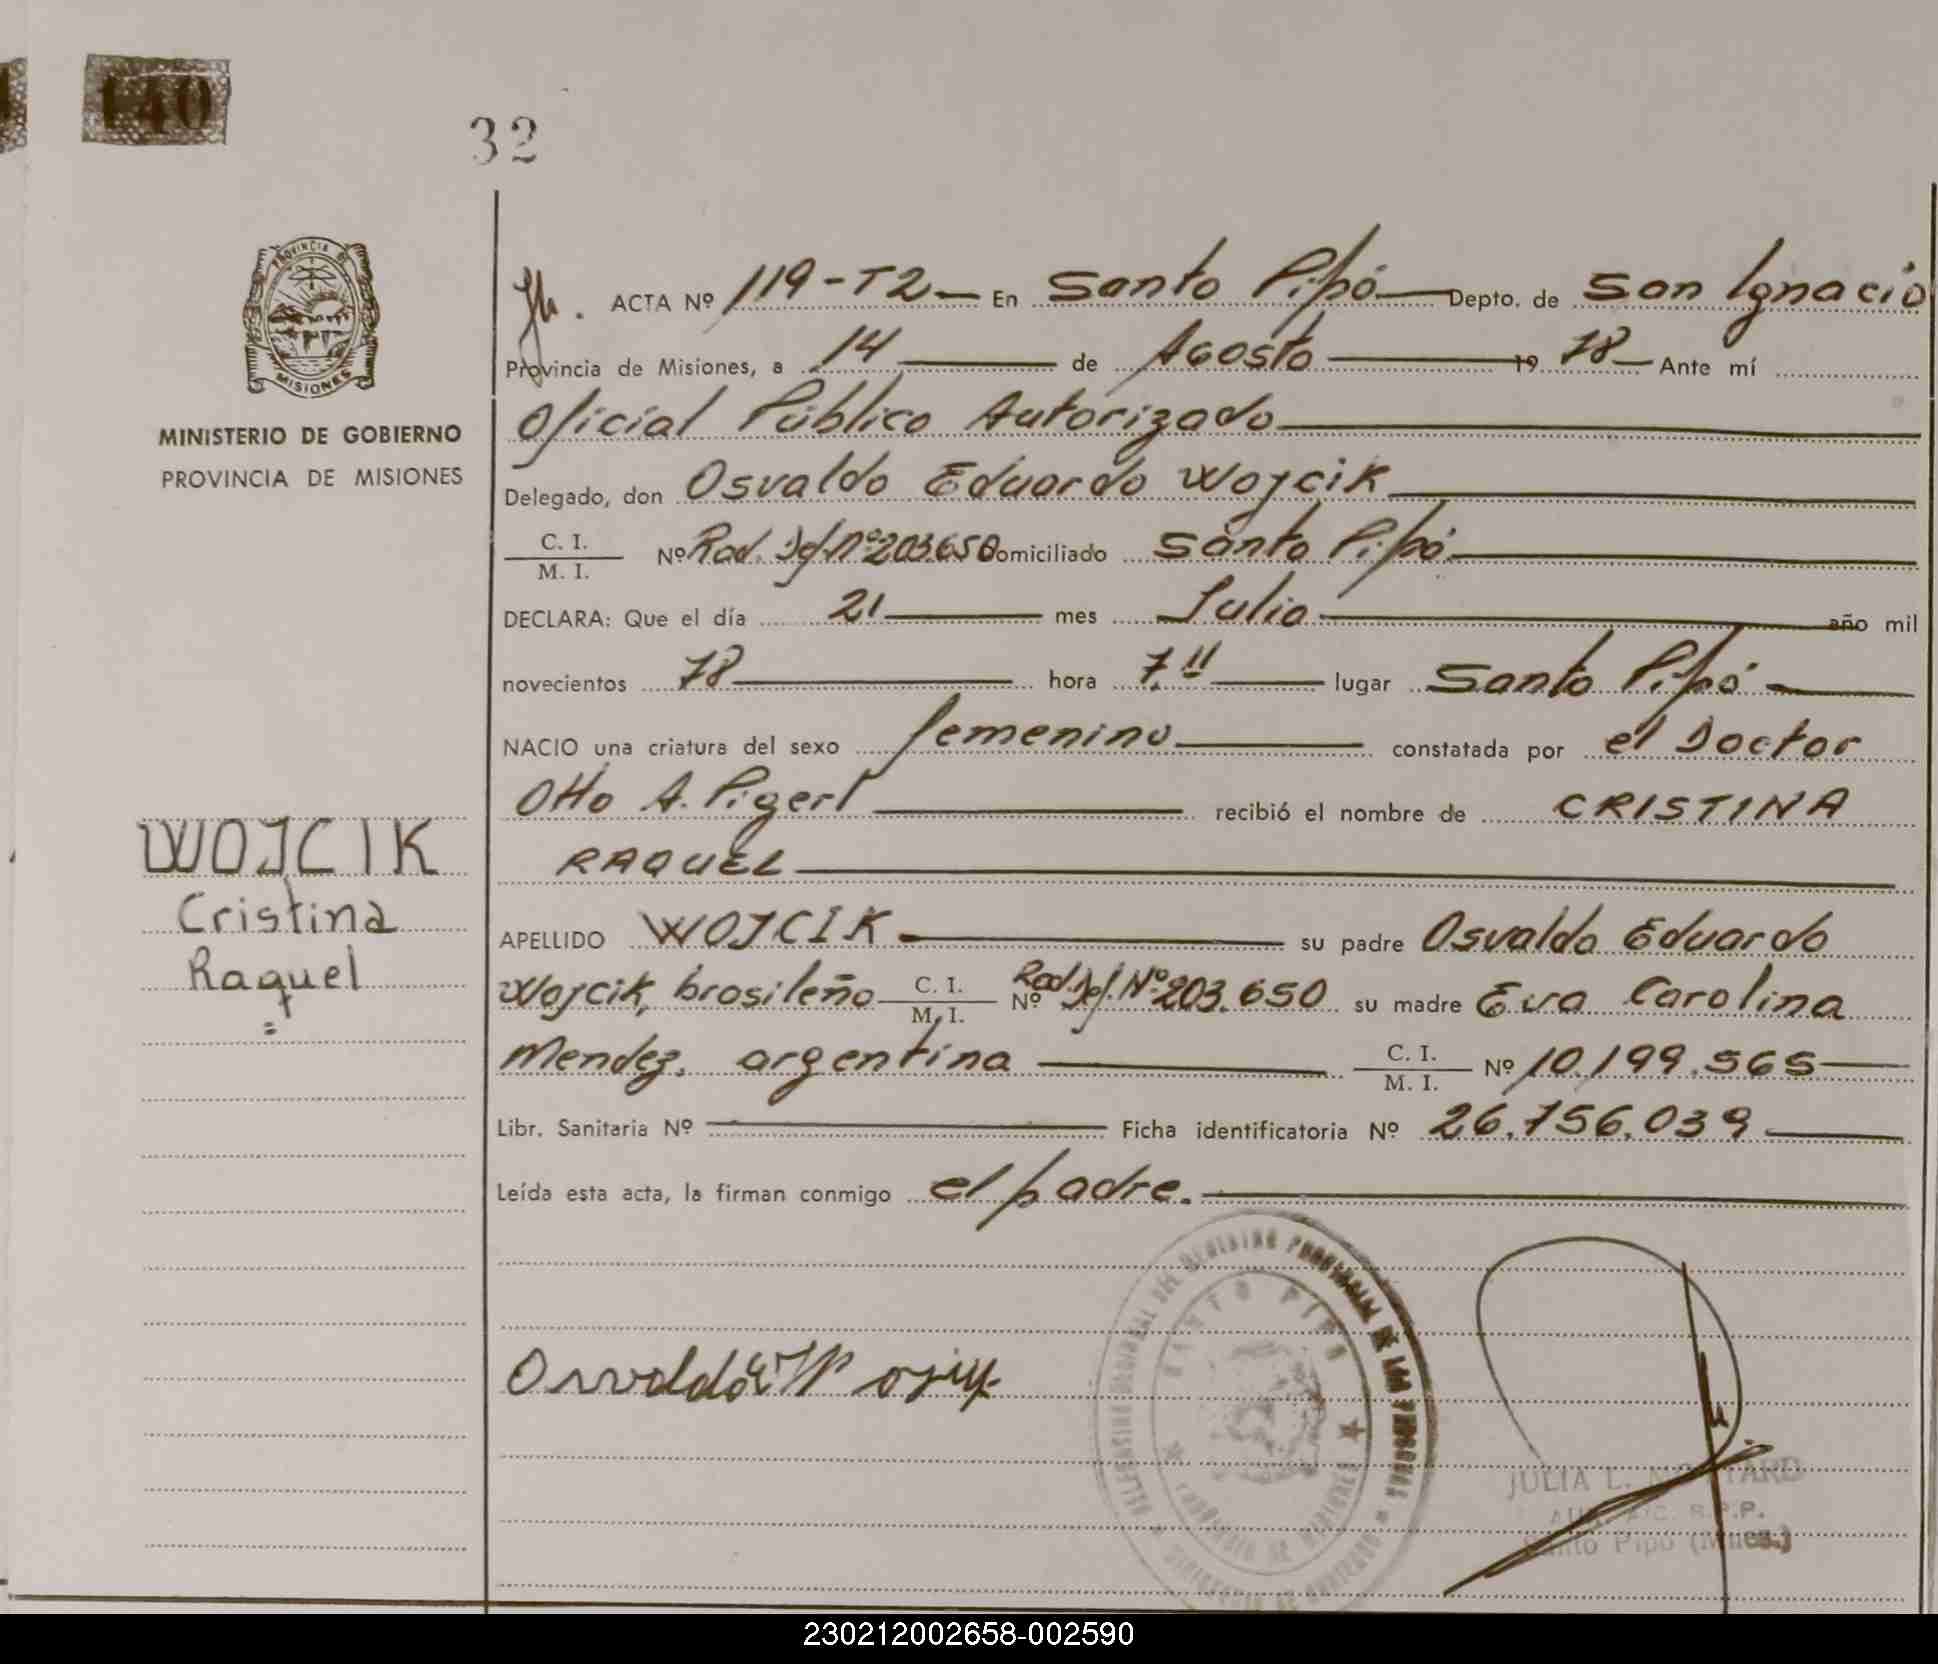 140
32
PROVINCIA DE
MISIONES
MINISTERIO DE GOBIERNO
PROVINCIA DE MISIONES
ACTA Nº 119-T2- En Santo Pipó Depto. de San Ignacio
Provincia de Misiones, a 14 de Agosto 19 78 Ante mí
Oficial Público Autorizado
Delegado, don Osvaldo Eduardo Wojcik
C. I.
M. I.
Nº Rad. Def. Nº 203.650 Domiciliado Santo Pipó
DECLARA: Que el día 21 mes Julio año mil
novecientos 78 hora 7.11 lugar Santo Pipó
NACIO una criatura del sexo femenino constatada por el Doctor
Otto A. Pigerl recibió el nombre de CRISTINA
RAQUEL
WOJCIK
Cristina
Raquel
APELLIDO WOJCIK su padre Osvaldo Eduardo
Wojcik, brasileño C. I. M. I. Nº Rad. Def. Nº 203.650 su madre Eva Carolina
Mendez, argentina C. I. M. I. Nº 10.199.565
Libr. Sanitaria Nº Ficha identificatoria Nº 26.756.039
Leída esta acta, la firman conmigo el padre.
SANTO PIPO
JULIA L.
Santo Pipo (Mnes.)
230212002658-002590